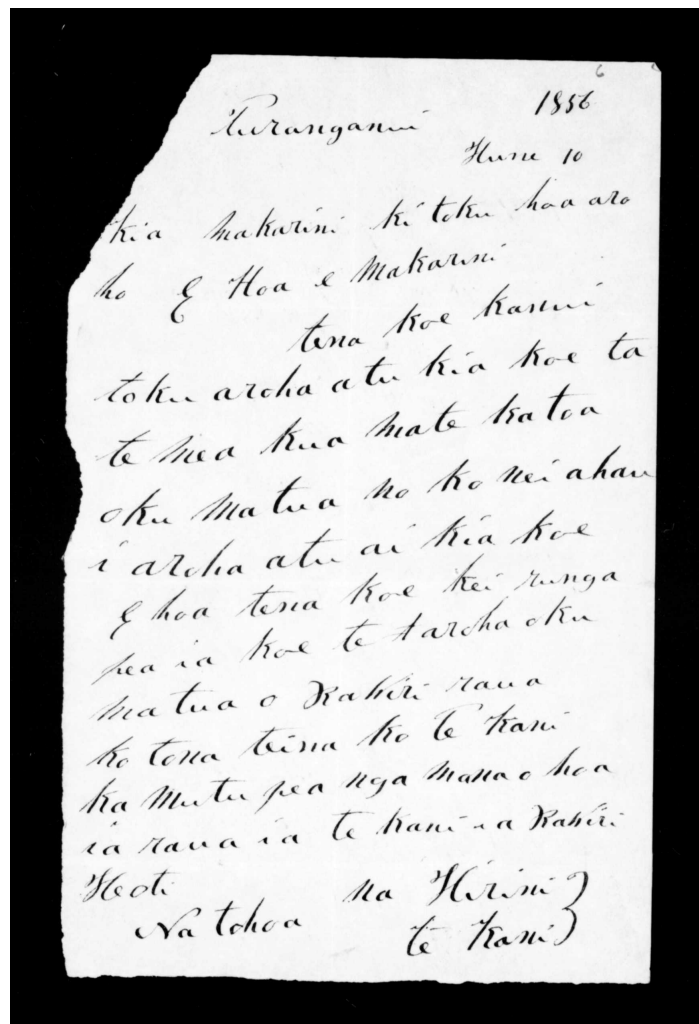 6
1856
Turanganui
Hune 10
kia Makarini ki toku hoa aro
ha E Hoa e Makarini
tena koe kanui
toku aroha atu kia koe ta
te mea kua mate katoa
oku Matua no ko nei ahau
i aroha atu ai kia koe
E hoa tena koe kei runga
pea ia koe te taroha oku
matua o Rawiri raua
ko tona teina ko Te Kani
ka Mutu pea nga mana o hoa
ia raua ia te Kani ia Rawiri
Heoti na Hirini
Na tohoa te Kani